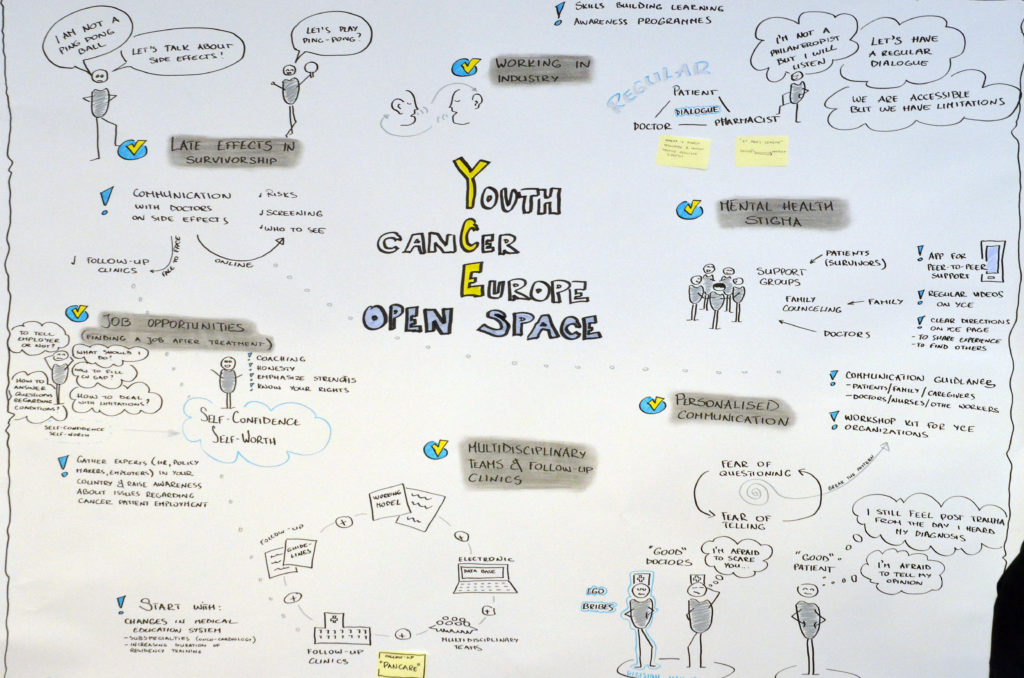 I AM NOT A
PING PONG
BALL
LET'S TALK ABOUT
SIDE EFFECTS!
LET'S PLAY
PING-PONG?
LATE EFFECTS IN
SURVIVORSHIP
! COMMUNICATION
WITH DOCTORS
ON SIDE EFFECTS
RISKS
SCREENING
WHO TO SEE
FACE TO FACE
ONLINE
FOLLOW-UP
CLINICS
WORKING IN
INDUSTRY
! SKILLS BUILDING LEARNING
AWARENESS PROGRAMMES
REGULAR
PATIENT
DIALOGUE
DOCTOR
PHARMACIST
I'M NOT A
PHILANTROPIST
BUT I WILL
LISTEN
LET'S HAVE
A REGULAR
DIALOGUE
WE ARE ACCESSIBLE
BUT WE HAVE LIMITATIONS
YOUTH
CANCER
EUROPE
OPEN SPACE
MENTAL HEALTH
STIGMA
SUPPORT
GROUPS
PATIENTS
(SURVIVORS)
FAMILY
COUNCELING
FAMILY
DOCTORS
! APP FOR
PEER-TO-PEER
SUPPORT
! REGULAR VIDEOS
ON YCE
! CLEAR DIRECTIONS
ON YCE PAGE
- TO SHARE EXPERIENCE
- TO FIND OTHERS
JOB OPPORTUNITIES
(FINDING A JOB AFTER TREATMENT)
TO TELL
EMPLOYER
OR NOT?
WHAT SHOULD I
DO?
HOW TO FILL
IN GAP?
HOW TO
ANSWER
QUESTIONS
REGARDING
CONDITIONS?
HOW TO DEAL
WITH LIMITATIONS?
SELF-CONFIDENCE
SELF-WORTH
! COACHING
! HONESTY
! EMPHASIZE STRENGTHS
! KNOW YOUR RIGHTS
SELF-CONFIDENCE
SELF-WORTH
! GATHER EXPERTS (HR, POLICY
MAKERS, EMPLOYERS) IN YOUR
COUNTRY & RAISE AWARENESS
ABOUT ISSUES REGARDING
CANCER PATIENT EMPLOYMENT
MULTIDISCIPLINARY
TEAMS & FOLLOW-UP
CLINICS
WORKING
MODEL
FOLLOW-UP
GUIDE-
LINES
ELECTRONIC
DATA BASE
MULTIDISCIPLINARY
TEAMS
FOLLOW-UP
CLINICS
FOLLOW-UP
"PANCARE"
! START WITH:
CHANGES IN MEDICAL
EDUCATION SYSTEM
- SUBSPECIALTIES (ONCO-CARDIOLOGY)
- INCREASING DURATION OF
RESIDENCY TRAINING
PERSONALISED
COMMUNICATION
! COMMUNICATION GUIDLANCE
- PATIENTS/FAMILY/CAREGIVERS
- DOCTORS/NURSES/OTHE WORKERS
! WORKSHOP KIT FOR YCE
ORGANIZATIONS
BREAK THE PATTERN!
FEAR OF
QUESTIONING
FEAR OF
TELLING
"GOOD"
DOCTORS
I'M AFRAID
TO SCARE
YOU...
EGO
BRIBES
"GOOD"
PATIENT
I STILL FEEL POST TRAUMA
FROM THE DAY I HEARD
MY DIAGNOSIS
I'M AFRAID
TO TELL MY
OPINION